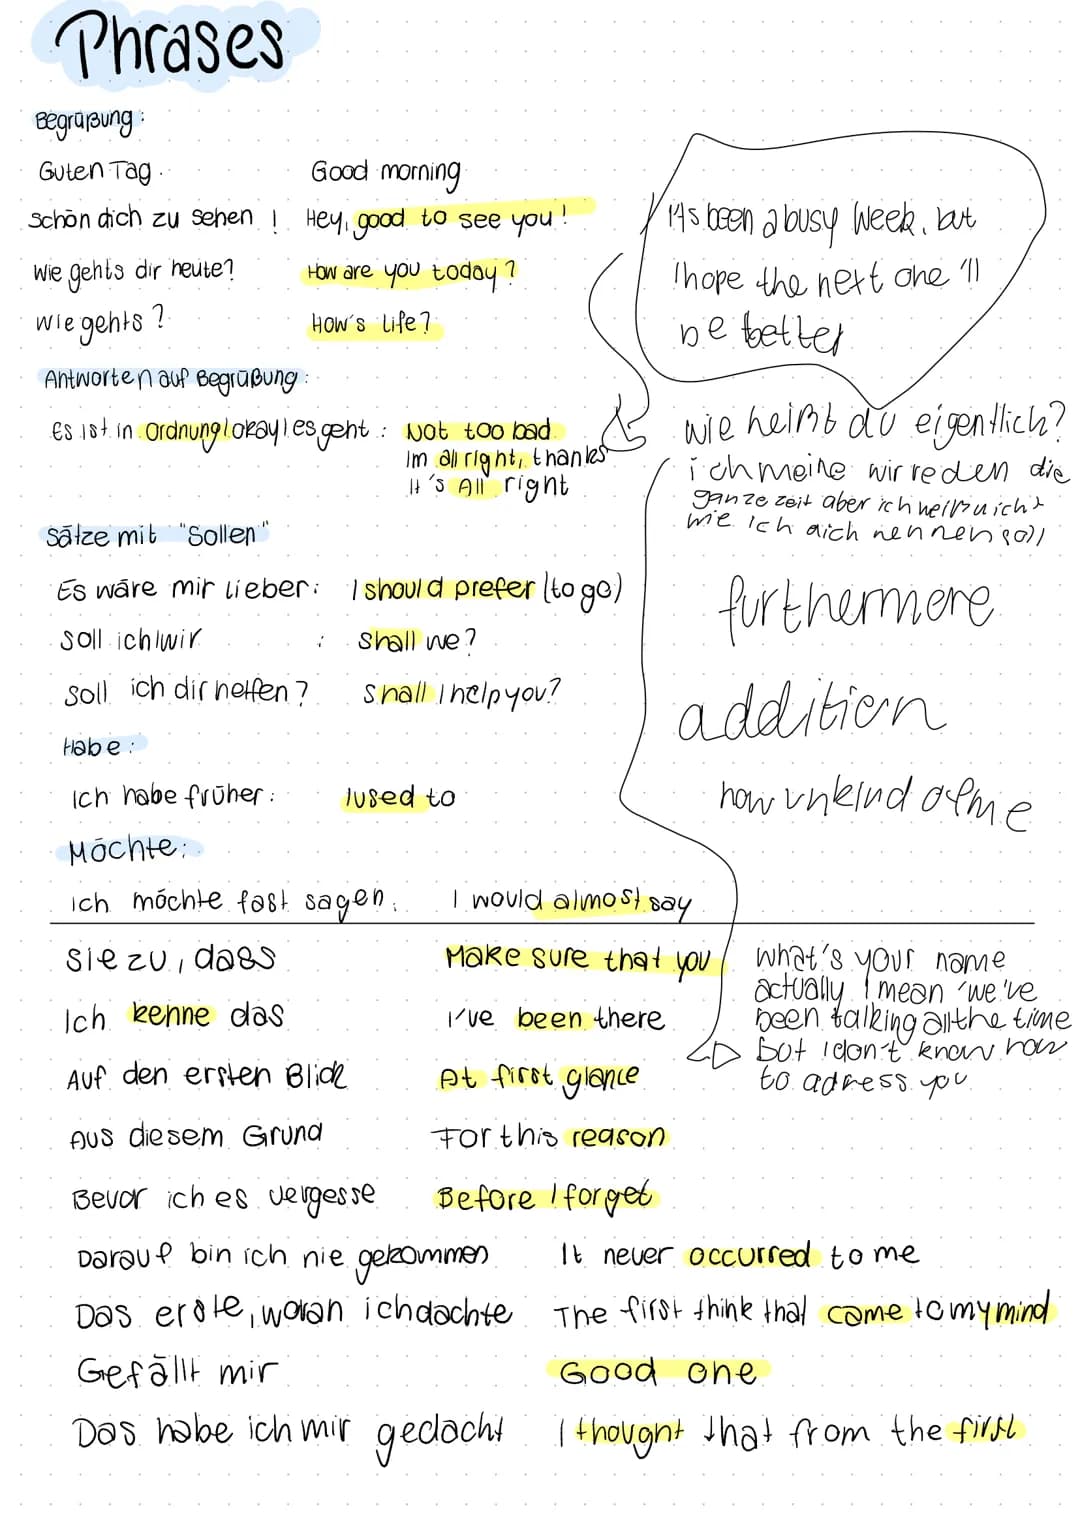 Phrases
Begrüßung:
Guten Tag. Good morning
schön dich zu sehen ! Hey, good to see you!
Wie gehts dir heute? How are you today?
Wie gehts? How's Life?
Antworten auf Begrüßung:
Es ist in Ordnung/okay/es geht: Not too bad.
Im all right, thanks
It's All right
Sätze mit "Sollen"
Es wäre mir lieber: I should prefer (to go)
Soll ich/wir : Shall we?
Soll ich dir helfen? Shall I help you?
Habe:
Ich habe früher: I used to
Möchte:
ich möchte fast sagen: I would almost say
It's been a busy week, but
I hope the next one 'll
be better
wie heißt du eigentlich?
ich meine wir reden die
ganze zeit aber ich weiß nicht
wie ich dich nennen soll
furthermore
addition
how unkind of me
Sie zu, dass Make sure that you
Ich kenne das I've been there
Auf den ersten Blick At first glance
Aus diesem Grund For this reason
Bevor ich es vergesse Before I forget
Darauf bin ich nie gekommen It never occurred to me
Das erste, woran ich dachte The first think that came to my mind
Gefällt mir Good one
Das habe ich mir gedacht I thought that from the first
what's your name
actually I mean 'we've
been talking all the time
but I don't know how
to adress you